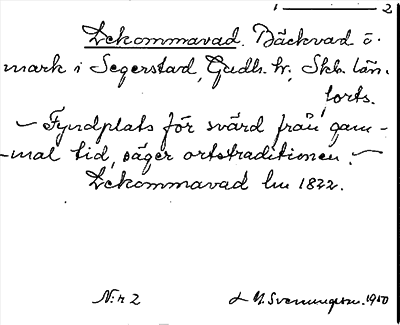 1 — 2
Lekommavad. Bäckvad å
mark i Segerstad, Gudh. hr, Skb. län,
torts.
— Fyndplats för svärd från gam-
-mal tid, säger ortstraditionen. —
Lekommavad lm 1822.
N:r 2
M. Svenungson. 1950